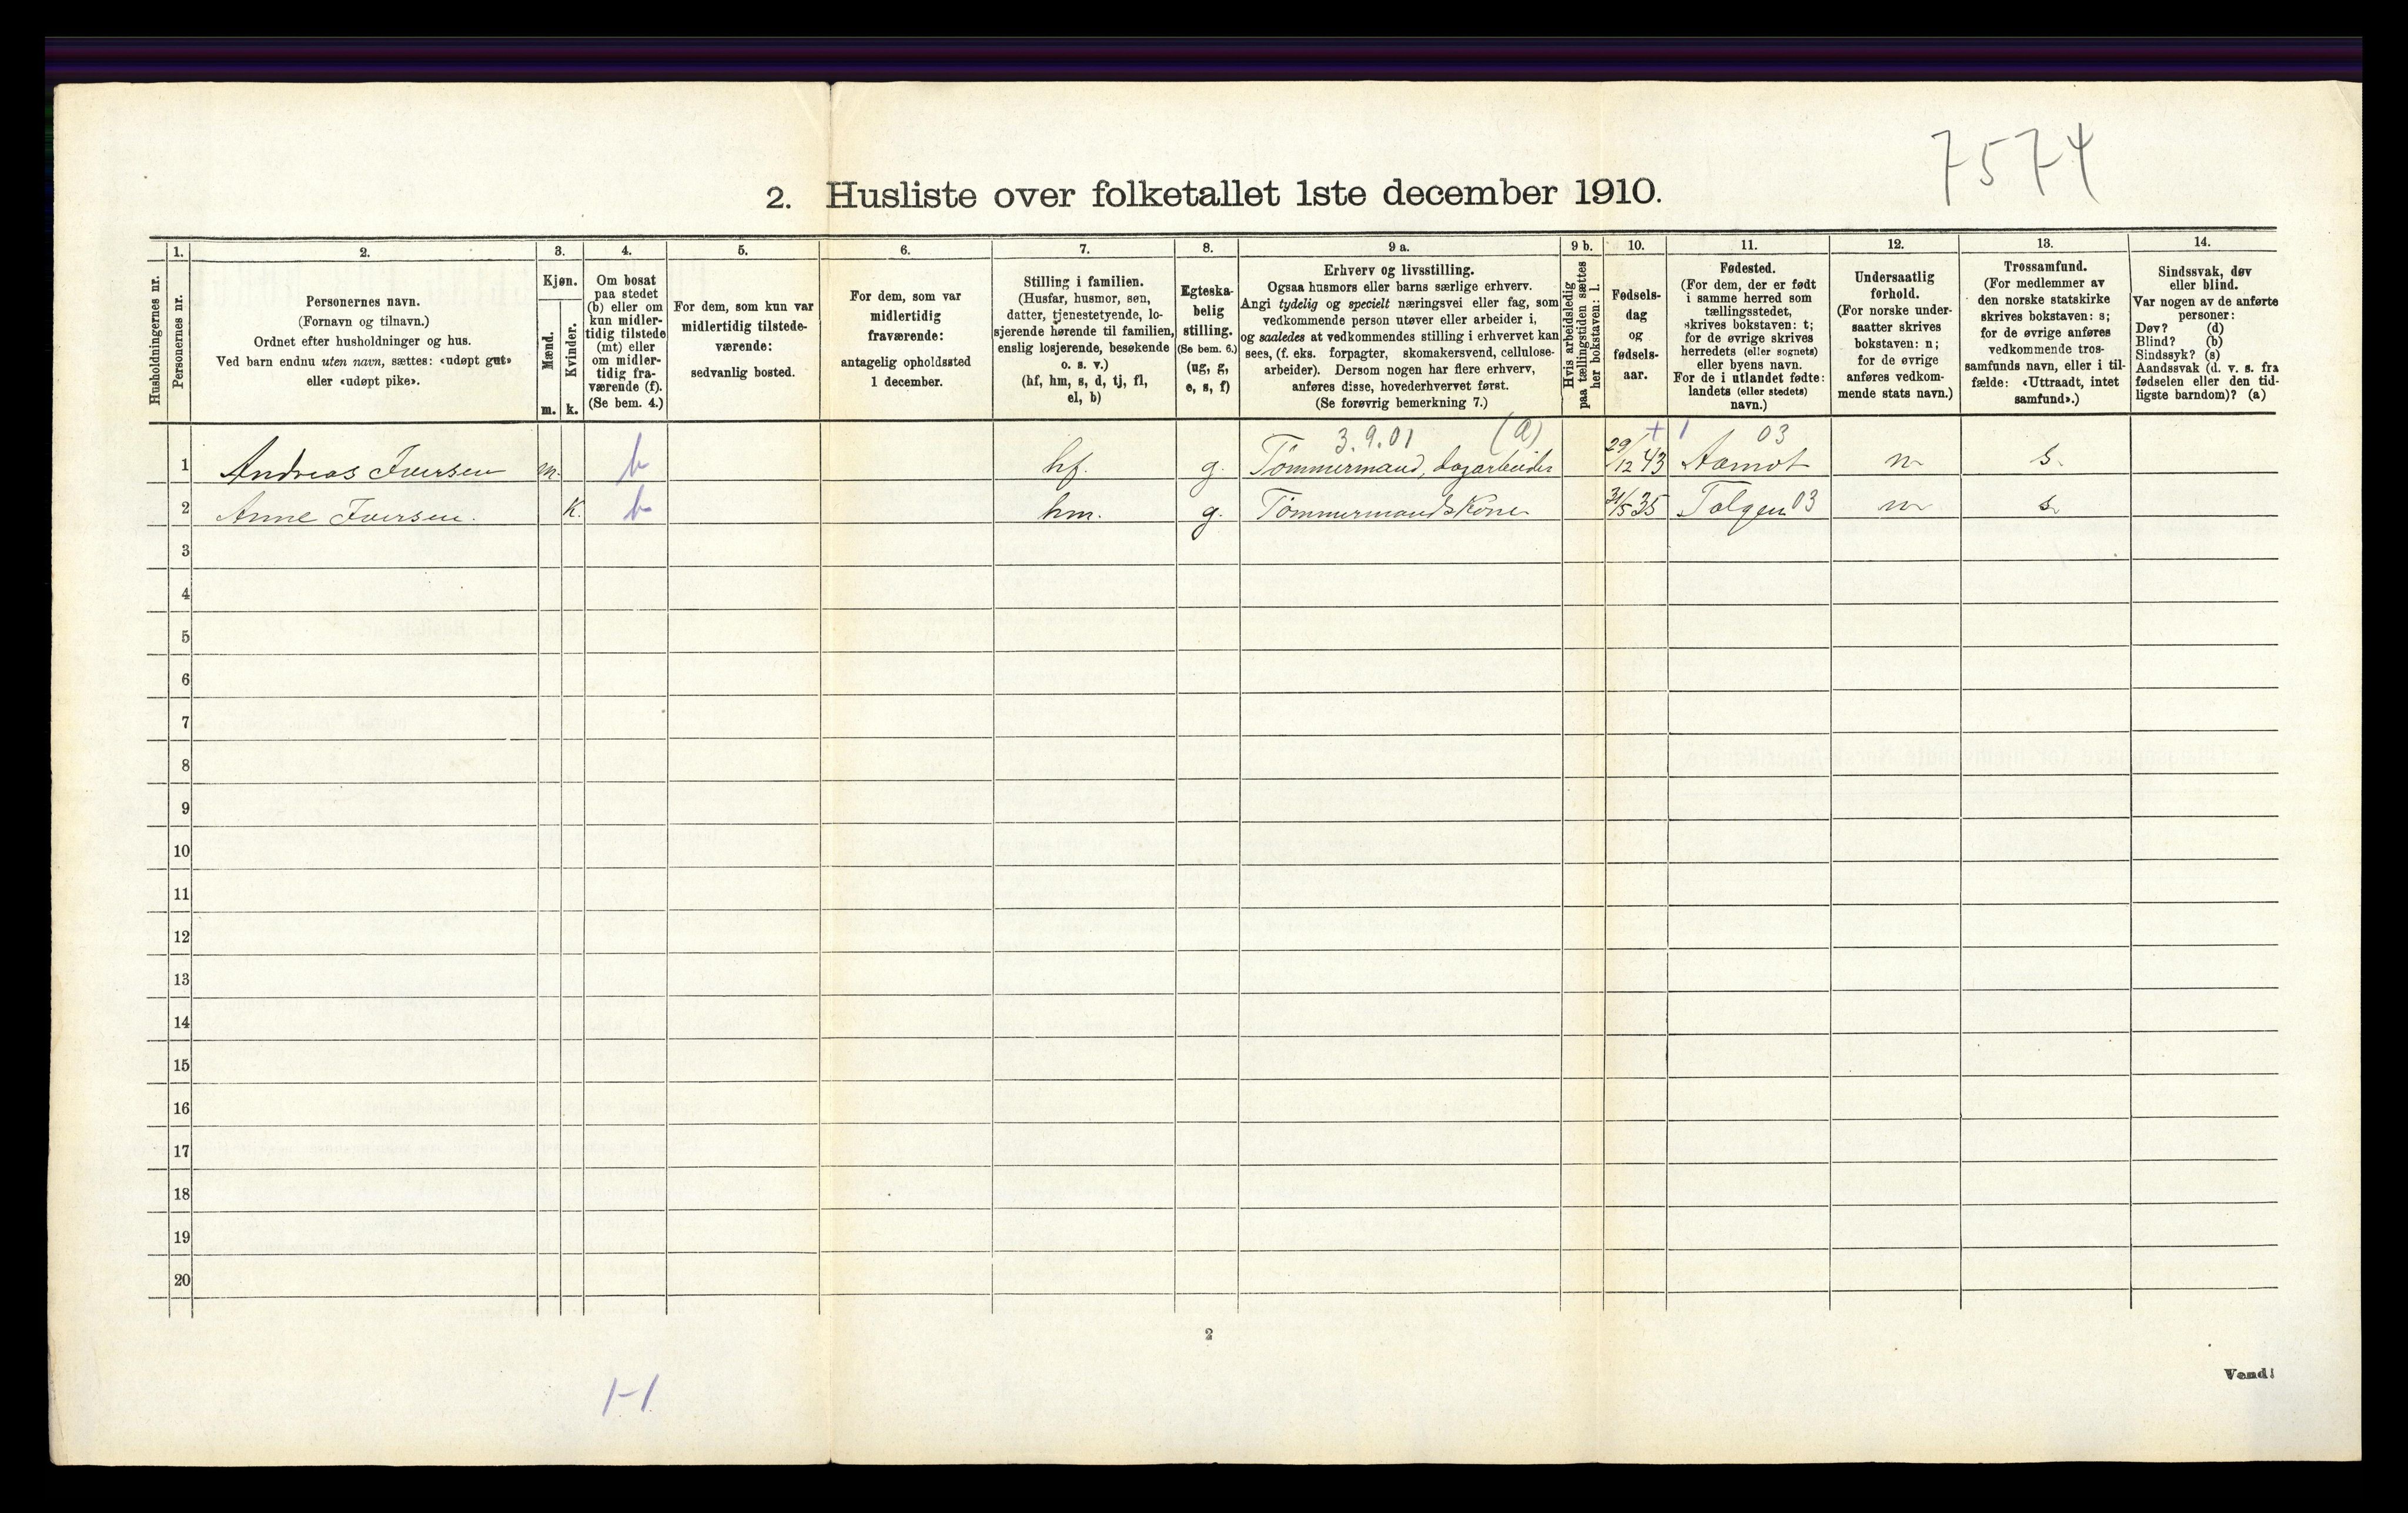 7574
2. Husliste over folketallet 1ste december 1910.
Husholdningernes nr.
1.
Personernes nr.
2.
Personernes navn.
(Fornavn og tilnavn.)
Ordnet efter husholdninger og hus.
Ved barn endnu uten navn, sættes: «udøpt gut»
eller «udøpt pike».
3.
Kjøn.
Mænd.
Kvinder.
m. k.
4.
Om bosat
paa stedet
(b) eller om
kun midler-
tidig tilstede
(mt) eller
om midler-
tidig fra-
værende (f).
(Se bem. 4.)
5.
For dem, som kun var
midlertidig tilstede-
værende:
sedvanlig bosted.
6.
For dem, som var
midlertidig
fraværende:
antagelig opholdssted
1 december.
7.
Stilling i familien.
(Husfar, husmor, søn,
datter, tjenestetyende, lo-
sjerende hørende til familien,
enslig losjerende, besøkende
o. s. v.)
(hf, hm, s, d, tj, fl,
el, b)
8.
Egteska-
belig
stilling.
(Se bem. 6.)
(ug, g,
e, s, f)
9 a.
Erhverv og livsstilling.
Ogsaa husmors eller barns særlige erhverv.
Angi tydelig og specielt næringsvei eller fag, som
vedkommende person utøver eller arbeider i,
og saaledes at vedkommendes stilling i erhvervet kan
sees, (f. eks. forpagter, skomakersvend, cellulose-
arbeider). Dersom nogen har flere erhverv,
anføres disse, hovederhvervet først.
(Se forøvrig bemerkning 7.)
9 b.
Hvis arbeidsledig
paa tællingstiden sættes
her bokstaven: l.
10.
Fødsels-
dag
og
fødsels-
aar.
11.
Fødested.
(For dem, der er født
i samme herred som
tællingsstedet,
skrives bokstaven: t;
for de øvrige skrives
herredets (eller sognets)
eller byens navn.
For de i utlandet fødte:
landets (eller stedets)
navn.)
12.
Undersaatlig
forhold.
(For norske under-
saatter skrives
bokstaven: n;
for de øvrige
anføres vedkom-
mende stats navn.)
13.
Trossamfund.
(For medlemmer av
den norske statskirke
skrives bokstaven: s;
for de øvrige anføres
vedkommende tros-
samfunds navn, eller i til-
fælde: «Uttraadt, intet
samfund».)
14.
Sindssvak, døv
eller blind.
Var nogen av de anførte
personer:
Døv? (d)
Blind? (b)
Sindssyk? (s)
Aandssvak (d. v. s. fra
fødselen eller den tid-
ligste barndom)? (a)
3.9.01 (a) + 1 03
1 Andreas Iversen m. b hf. g. Tømmermand, dagarbeider 29/12 43 Aamot n s.
2 Anne Iversen. K. b hm. g. Tømmermandskone 31/5 35 Tolgen 03 n s.
3
4
5
6
7
8
9
10
11
12
13
14
15
16
17
18
19
20
2
Vend!
1-1